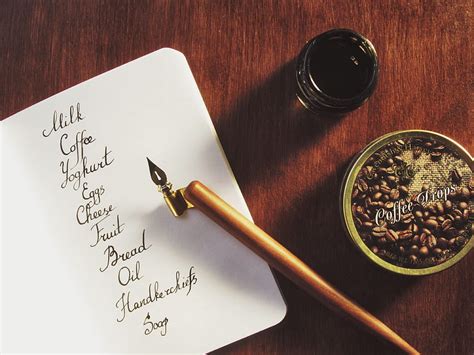 Milk
Coffee
Yoghurt
Eggs
Cheese
Fruit
Bread
Oil
Handkerchiefs
Soap
Coffee Drops